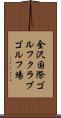 金沢国際ゴ
ルフクラブ
ゴルフ場